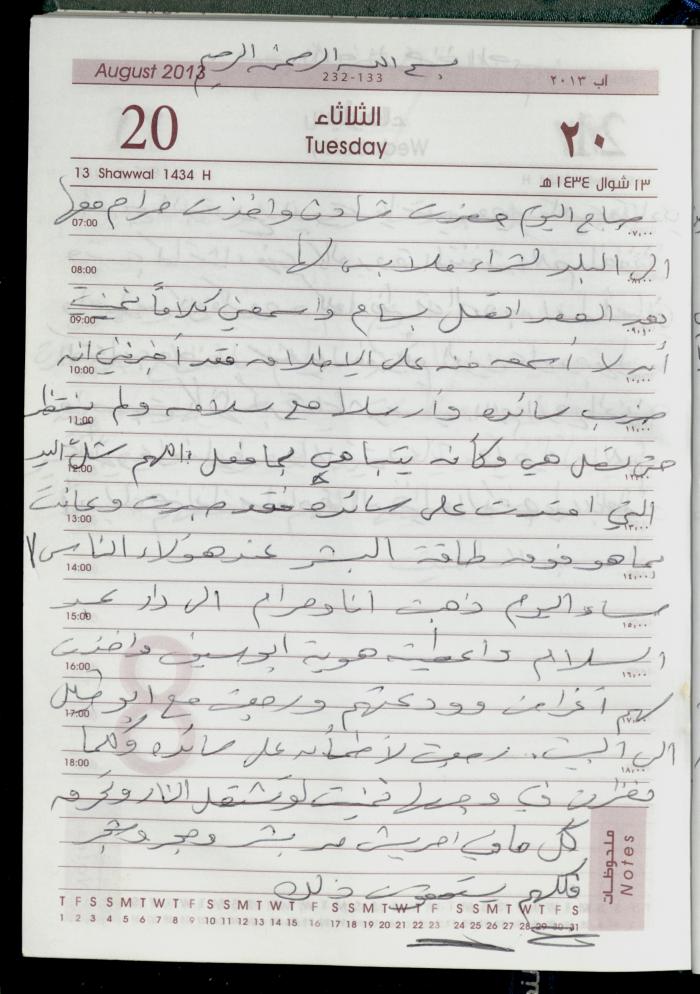 بسم الله الرحمن الرحيم
August 2013 232-133 آب ٢٠١٣
20 الثلاثاء ٢٠
Tuesday
13 Shawwal 1434 H ١٣ شوال ١٤٣٤ هـ
صباح اليوم حضرت شادن واخذت مرام معها
07:00 ٠٧,٠٠
الى البلد لشراء ملابس لها
08:00 ٠٨,٠٠
بعد العصر اتصل بسام واسمعني كلاماً تمنيت
09:00 ٠٩,٠٠
أن لا أسمعه منه على الاطلاق فقد أخبرني انه
10:00 ١٠,٠٠
ضرب سائده وأرسلها مع سلامه ولم ينتظر
11:00 ١١,٠٠
حتى تصل هي وكأنه يتباهى بما فعل اللهم شل اليد
12:00 ١٢,٠٠
التي امتدت على سائده فقد صبرت وعانت
13:00 ١٣,٠٠
بما هو فوق طاقة البشر عند هؤلاء الناس
14:00 ١٤,٠٠
مساء اليوم ذهبت انا ومرام الى دار عبد
15:00 ١٥,٠٠
السلام واعطيته هوية ابو سيف واخذت
16:00 ١٦,٠٠
لهم أغراض وودعتهم ورجعت مع ابو
17:00 ١٧,٠٠
الى البيت. رجعت لأطمأن على سائده وكلما
18:00 ١٨,٠٠
نظرت في وجهها تمنيت لو تشتعل النار وتحرق
كل ما في من بشر وحجر وشجر
فكلهم يستحقون ذلك
ملاحظات
Notes
T F S S M T W T F S S M T W T F S S M T W T F S S M T W T F S
1 2 3 4 5 6 7 8 9 10 11 12 13 14 15 16 17 18 19 20 21 22 23 24 25 26 27 28 29 30 31